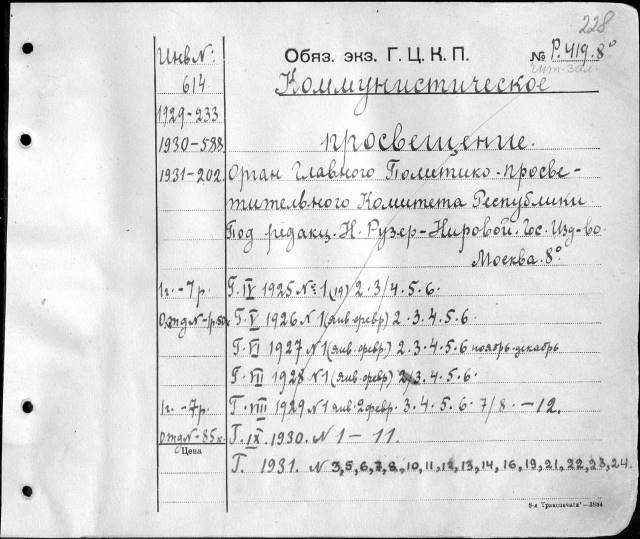 228
Инв№:
614
Обяз. экз. Г. Ц. К. П.
№ Р.419.8°
Чит-зал
Коммунистическое
1929-233
1930-588
просвещение.
1931-202.
Орган Главного Политико-просве-
тительного Комитета Республики
Под редакц. Н. Рузер-Нировой. Гос. Изд-во.
Москва. 8°
1г. -7р.
Г. IV 1925 № 1 (19) 2. 3/4. 5. 6.
Отд№-1р.50к
Г. V 1926 N 1 (янв-февр) 2. 3. 4. 5. 6
Г. VI 1927 N 1 (янв.февр.) 2. 3. 4. 5. 6 ноябрь-декабрь
Г. VII 1928 N 1 (янв.февр) 2/3. 4. 5. 6.
1г. -7р.
Г. VIII 1929 N 1 янв. 2 февр. 3. 4. 5. 6. 7/8. -12.
отд№-85к.
Г. IX. 1930. N 1-11.
Цена
Г. 1931. N 3,5,6,7,8,,10,11,12,13,14, 16,19,21,22,23,24.
8-я „Транспечати"—3884